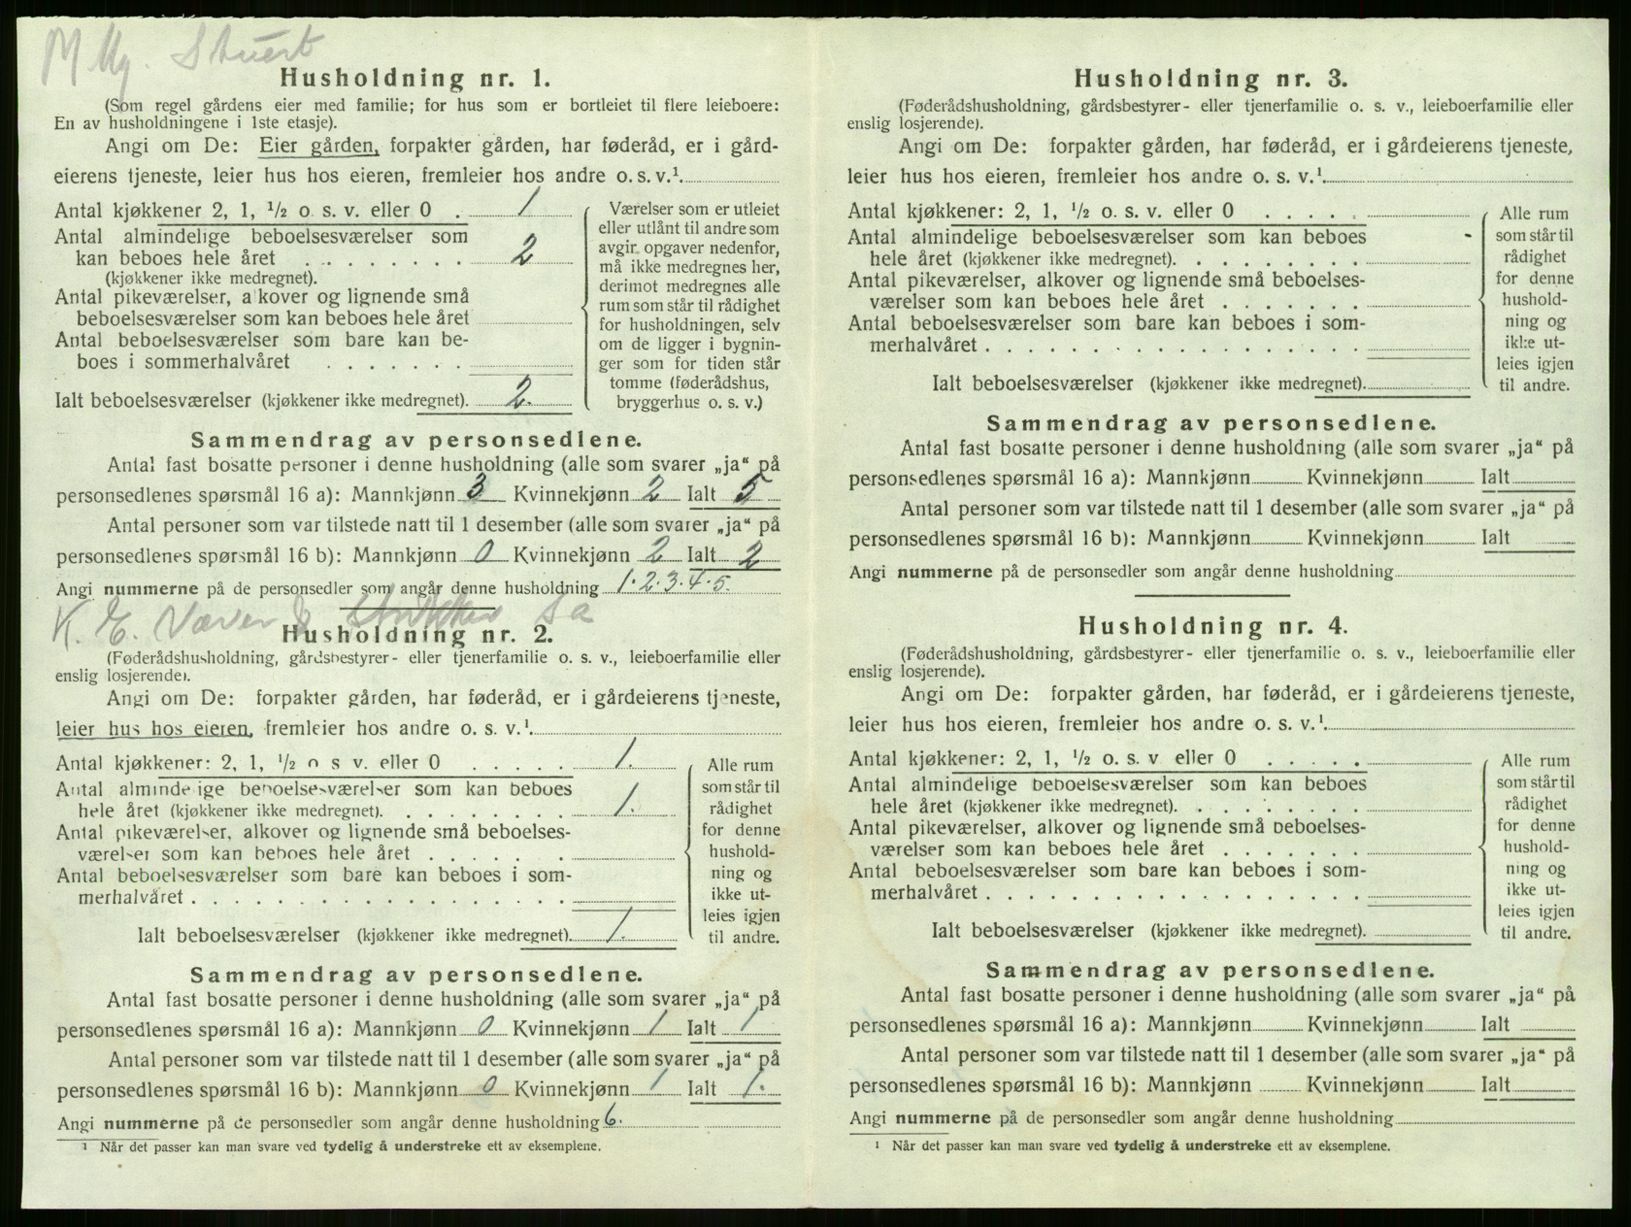 Husholdning nr. 1.
(Som regel gårdens eier med familie; for hus som er bortleiet til flere leieboere:
En av husholdningene i 1ste etasje).
Angi om De: Eier gården, forpakter gården, har føderåd, er i gård-
eierens tjeneste, leier hus hos eieren, fremleier hos andre o. s. v.¹
Antal kjøkkener 2, 1, ½ o. s. v. eller 0 . 1
Antal almindelige beboelsesværelser som
kan beboes hele året . . . . . . . . 2
(kjøkkener ikke medregnet).
Antal pikeværelser, alkover og lignende små
beboelsesværelser som kan beboes hele året
Antal beboelsesværelser som bare kan be-
boes i sommerhalvåret . . . . . . .
Ialt beboelsesværelser (kjøkkener ikke medregnet). 2.
Værelser som er utleiet
eller utlånt til andre som
avgir opgaver nedenfor,
må ikke medregnes her,
derimot medregnes alle
rum som står til rådighet
for husholdningen, selv
om de ligger i bygnin-
ger som for tiden står
tomme (føderådshus,
bryggerhus o. s. v.)
Sammendrag av personsedlene.
Antal fast bosatte personer i denne husholdning (alle som svarer „ja“ på
personsedlenes spørsmål 16 a): Mannkjønn 3 Kvinnekjønn 2 Ialt 5
Antal personer som var tilstede natt til 1 desember (alle som svarer „ja“ på
personsedlenes spørsmål 16 b): Mannkjønn 0 Kvinnekjønn 2 Ialt 2
Angi nummerne på de personsedler som angår denne husholdning 1.2.3.4.5.
K. E. Væver
Husholdning nr. 2.
(Føderådshusholdning, gårdsbestyrer- eller tjenerfamilie o. s. v., leieboerfamilie eller
enslig losjerende).
Angi om De: forpakter gården, har føderåd, er i gårdeierens tjeneste,
leier hus hos eieren, fremleier hos andre o. s. v.¹
Antal kjøkkener: 2, 1, ½ o s v. eller 0 . . . . . 1.
Antal almindelige beboelsesværelser som kan beboes
hele året (kjøkkener ikke medregnet). . . . . . . . . 1.
Antal pikeværelser, alkover og lignende små beboelses-
værelser som kan beboes hele året . . . . . . .
Antal beboelsesværelser som bare kan beboes i som-
merhalvåret . . . . . . . . . . . . . . . . . .
Ialt beboelsesværelser (kjøkkener ikke medregnet). 1.
Alle rum
som står til
rådighet
for denne
hushold-
ning og
ikke ut-
leies igjen
til andre.
Sammendrag av personsedlene.
Antal fast bosatte personer i denne husholdning (alle som svarer „ja“ på
personsedlenes spørsmål 16 a): Mannkjønn 0 Kvinnekjønn 1 Ialt 1
Antal personer som var tilstede natt til 1 desember (alle som svarer „ja“ på
personsedlenes spørsmål 16 b): Mannkjønn 0 Kvinnekjønn 1 Ialt 1.
Angi nummerne på de personsedler som angår denne husholdning 6.
¹ Når det passer kan man svare ved tydelig å understreke ett av eksemplene.
Husholdning nr. 3.
(Føderådshusholdning, gårdsbestyrer- eller tjenerfamilie o. s. v., leieboerfamilie eller
enslig losjerende).
Angi om De: forpakter gården, har føderåd, er i gårdeierens tjeneste,
leier hus hos eieren, fremleier hos andre o. s. v.¹
Antal kjøkkener: 2, 1, ½ o. s. v. eller 0 . . . . .
Antal almindelige beboelsesværelser som kan beboes
hele året (kjøkkener ikke medregnet). . . . . . . . .
Antal pikeværelser, alkover og lignende små beboelses-
værelser som kan beboes hele året . . . . . . .
Antal beboelsesværelser som bare kan beboes i som-
merhalvåret . . . . . . . . . . . . . . . . . .
Ialt beboelsesværelser (kjøkkener ikke medregnet).
Alle rum
som står til
rådighet
for denne
hushold-
ning og
ikke ut-
leies igjen
til andre.
Sammendrag av personsedlene.
Antal fast bosatte personer i denne husholdning (alle som svarer „ja“ på
personsedlenes spørsmål 16 a): Mannkjønn Kvinnekjønn Ialt
Antal personer som var tilstede natt til 1 desember (alle som svarer „ja“ på
personsedlenes spørsmål 16 b): Mannkjønn Kvinnekjønn Ialt
Angi nummerne på de personsedler som angår denne husholdning
Husholdning nr. 4.
(Føderådshusholdning, gårdsbestyrer- eller tjenerfamilie o. s. v., leieboerfamilie eller
enslig losjerende).
Angi om De: forpakter gården, har føderåd, er i gårdeierens tjeneste,
leier hus hos eieren, fremleier hos andre o. s. v.¹
Antal kjøkkener: 2, 1, ½ o. s. v eller 0 . . . . .
Antal almindelige beboelsesværelser som kan beboes
hele året (kjøkkener ikke medregnet). . . . . . . . .
Antal pikeværelser, alkover og lignende små beboelses-
værelser som kan beboes hele året . . . . . . .
Antal beboelsesværelser som bare kan beboes i som-
merhalvåret . . . . . . . . . . . . . . . . . .
Ialt beboelsesværelser (kjøkkener ikke medregnet).
Alle rum
som står til
rådighet
for denne
hushold-
ning og
ikke ut-
leies igjen
til andre.
Sammendrag av personsedlene.
Antal fast bosatte personer i denne husholdning (alle som svarer „ja“ på
personsedlenes spørsmål 16 a): Mannkjønn Kvinnekjønn Ialt
Antal personer som var tilstede natt til 1 desember (alle som svarer „ja“ på
personsedlenes spørsmål 16 b): Mannkjønn Kvinnekjønn Ialt
Angi nummerne på de personsedler som angår denne husholdning
¹ Når det passer kan man svare ved tydelig å understreke ett av eksemplene.